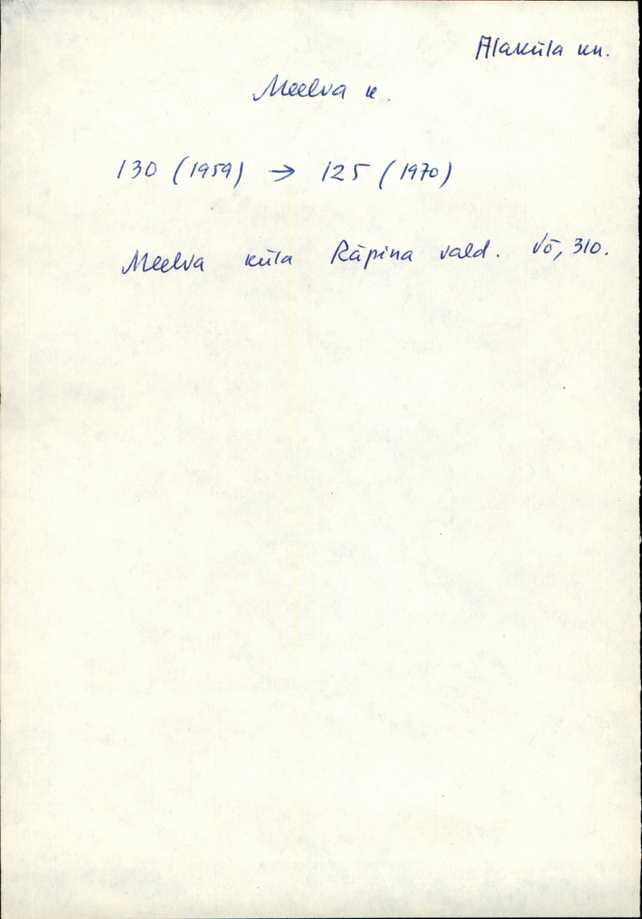 Alaküla kn.
Meelva k.
130 (1959) → 125 (1970)
Meelva küla Räpina vald. Võ, 310.